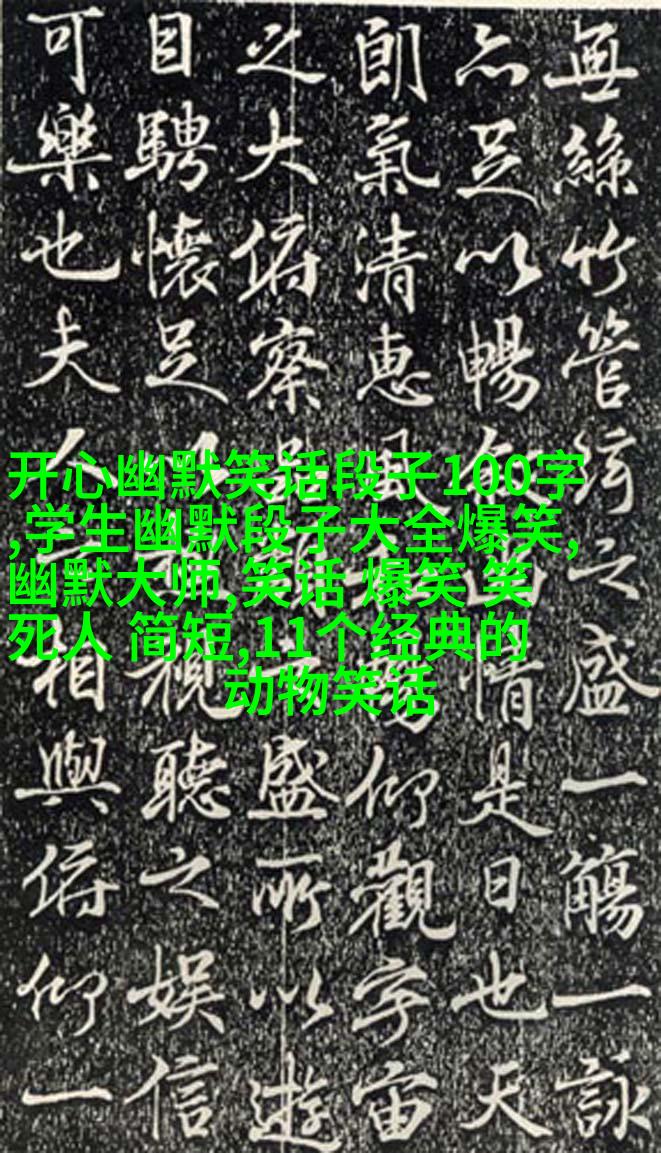 無絲竹管絃之盛一觴一詠
亦足以暢叙幽情是日也天
朗氣清惠風和暢仰觀宇宙
之大俯察品類之盛所以遊
目騁懷足以極視聽之娛信
可樂也夫人之相與俯仰一
开心幽默笑话段子100字
,学生幽默段子大全爆笑,
幽默大师,笑话 爆笑 笑
死人 简短,11个经典的
动物笑话